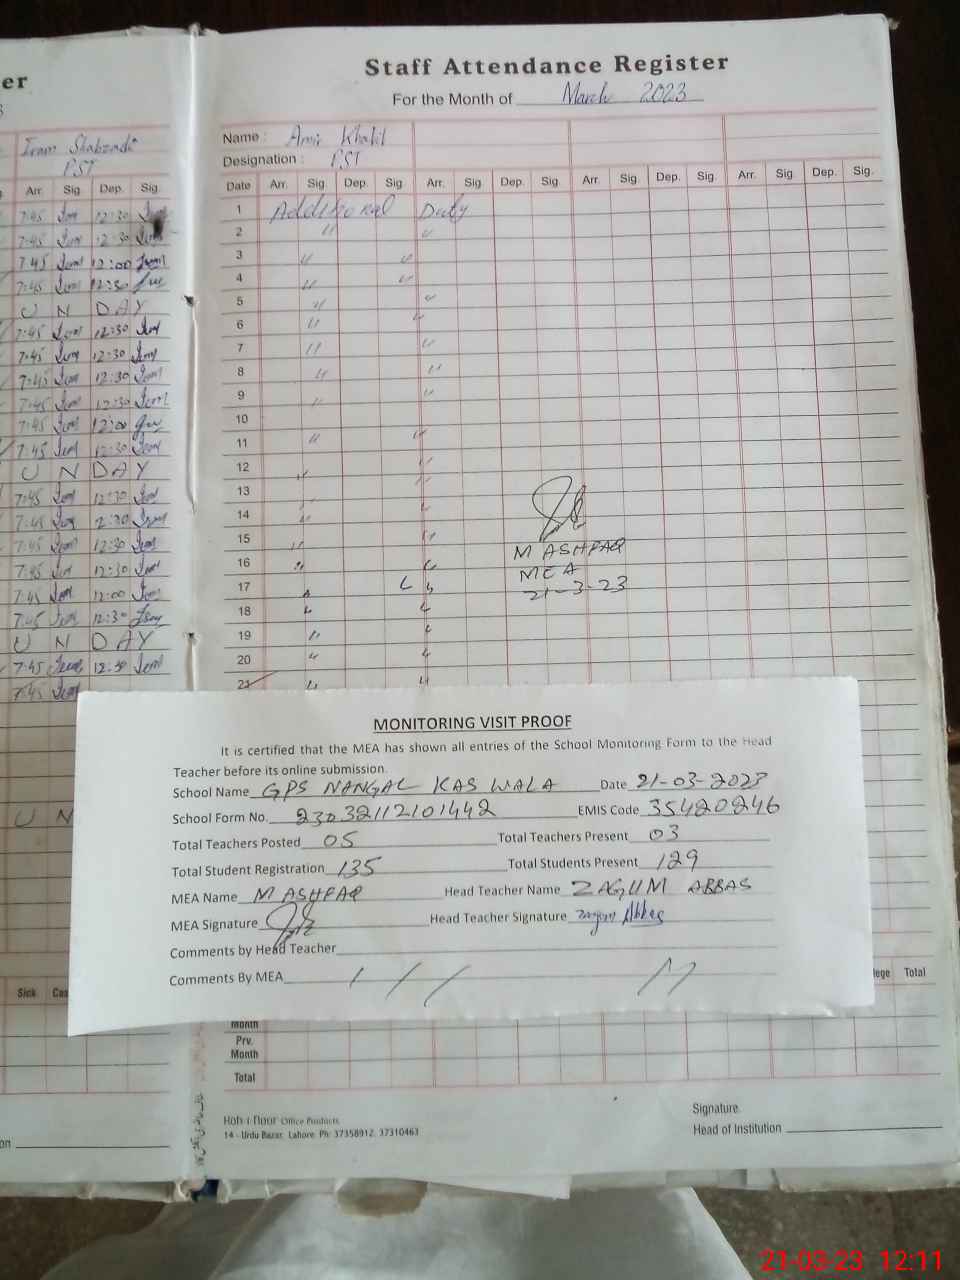 er
Iram Shahzadi
PST
Arr. Sig. Dep. Sig.
7:45 12:30
7:45 12:30
7:45 12:00
7:45 12:30
U N DAY
7:45 12:30
7:45 12:30
7:45 12:30
7:45 12:30
7:45 12:00
7:45 12:30
U N DAY
7:45 12:30
7:45 2:30
7:45 12:30
7:45 12:30
7:45 12:00
7:45 12:30
U N DAY
7:45 12:30
7:45
U N
Sick
Staff Attendance Register
For the Month of March 2023
Name : Amir Khalil
Designation : PST
Date Arr. Sig Dep. Sig Arr. Sig Dep. Sig. Arr. Sig. Dep. Sig. Arr. Sig. Dep. Sig.
1 Additional Duty
2 " "
3 " "
4 " "
5 " "
6 " "
7 " "
8 " "
9 " "
10
11 " "
12 "
13 " "
14 " "
15 " "
16 " "
17 " "
18 " "
19 " "
20 " "
21 " "
M ASHFAQ
MEA
21-3-23
MONITORING VISIT PROOF
It is certified that the MEA has shown all entries of the School Monitoring Form to the Head
Teacher before its online submission.
School Name GPS NANGAL KAS WALA Date 21-03-2023
School Form No. 23032112101442 EMIS Code 35420246
Total Teachers Posted 05 Total Teachers Present 03
Total Student Registration 135 Total Students Present 129
MEA Name M ASHFAQ Head Teacher Name ZAGUM ABBAS
MEA Signature Head Teacher Signature Zagum Abbas
Comments by Head Teacher
Comments By MEA
Total
Month
Prv.
Month
Total
Office Products
14 - Urdu Bazar, Lahore. Ph: 37358912, 37310463
Signature.
Head of Institution
21-03-23 12:11